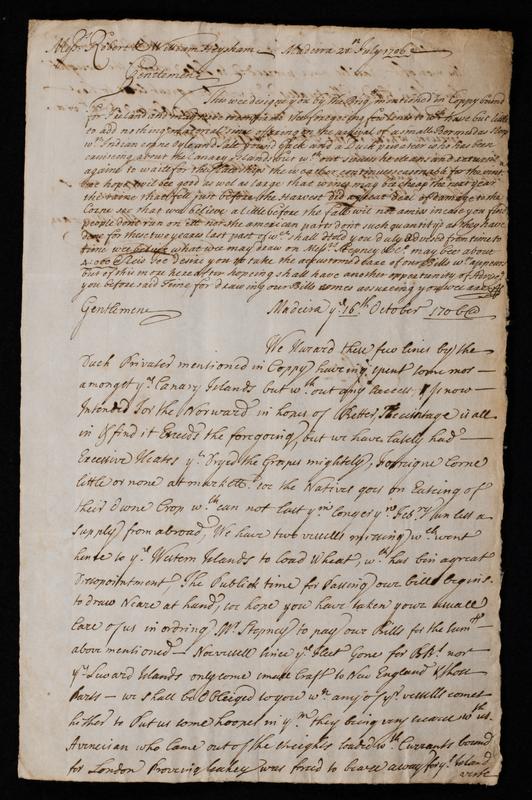 Messrs. Robert & William Heysham Madeira 21st July 1706
Gentlemene
This wee design you by the Brigt. mentioned in Coppy bound
for
to add nothing material since is being on the arivall of a small Bermodas sloop
wth. Indian corne & salt & a Duch privateer who has been
cruiseing about the Canary Islands but wth. out success he cleans and
againe to waite for the ships the weather continues seasonable for the vines
but hope will be good as wel as large that wines may be cheap the next year
the raine that fell just before the Harvest did a great deal of damage to the
Corne soe that wee believe a little before the fall will not amiss incase you find
people dont run on it & not the american parts dont such quantity as they have
don for these two years last past of wch. shall hold you duly advised from time to
time wee what wee may draw on Messrs. Stepney &c. may bee about
desire you to take the accustomed care of our Bills wn. appear
but of this more hereafter hopeing shall have another opportunity of
you before said time for drawing our Bills assureing you wee are
Gentlemene Madeira ye. 16th. October 1706
We Haward these few lines by the
Duch Privateer mentioned in Coppy haveing spent some mos
amongst ye. Canary Islands but wth. out any success & is now
Intended for the Norward in hopes of Better, The vintage is all
in & find it Exceeds the foregoing, but we have lately had
Excessive Heates yt. Dryed the Grapes mightely, foreigne Corne
little or none at markett soe the Natives goes on Eateing of
their Owne Crop wch. can not last ym. longer yn. Feb.ry un less a
supply from abroad, We have two vessells missing wch. went
hence to ye. Western Islands to load Wheat, wch. has bin a great
Dissapointment, The Publick time for passing our bills begins
to draw Neare at hand, we hope you have taken your usuall
Care of us in ordring Mr. Stepney to pay our Bills for the sum
above mentioned Noe vessell since ye. fleet Gone for Bbs. nor
ye. Leward Islands only some small Craft to New England & those
Parts we shall be Obleiged to you wn. any of yr. vessells comes
hether to Put us some hoopes in ym. they being very scarce wth. us.
A venecian who came out of the streights loaded wth. Currants bound
for London Proveing leakey was forced to beare away for ye. Island